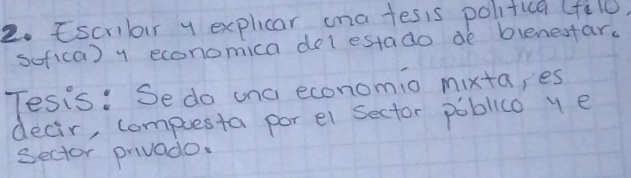 2. Escribir y explicar una tesis política (filo
sofica) y economica del estado de bienestar.
Tesis: Se da una economía mixta, es
decir, compuesta por el sector público y e
sector privado.